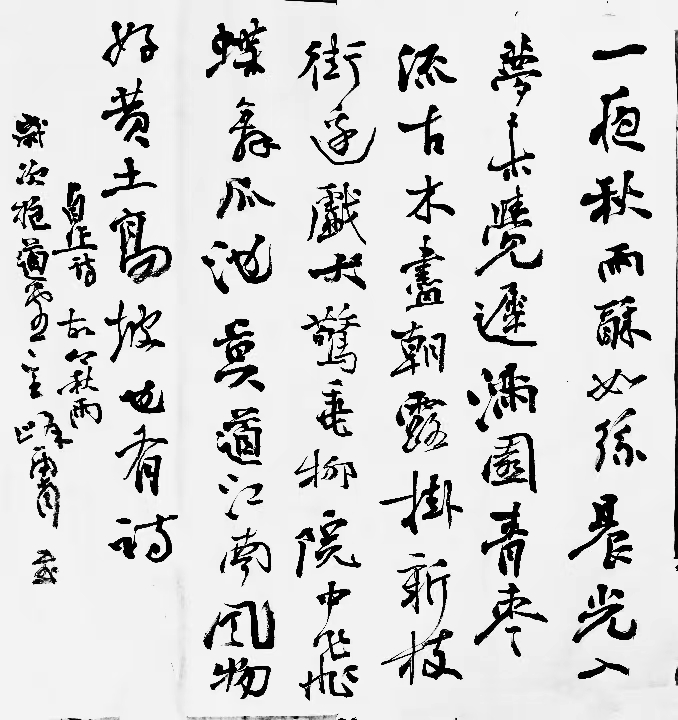 一夜秋雨酥如絲晨光入
夢未覺遲滿園青棗
流古木盡朝露掛新枝
街邊戲犬驚垂柳院中飛
蝶舞瓜池莫道江南風物
好黄土高坡也有詩
自作詩 秋雨
歲次